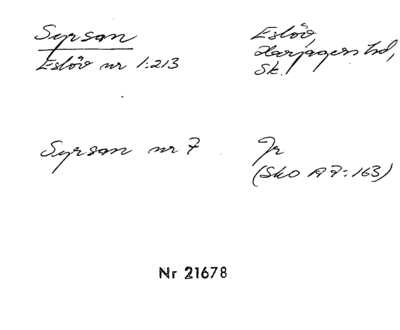 Syrsan
Eslöv nr 1:213
Eslöv,
Harjagers hd,
Sk.
Syrsan nr 7
Jr
(Sko A 7:163)
Nr 21678